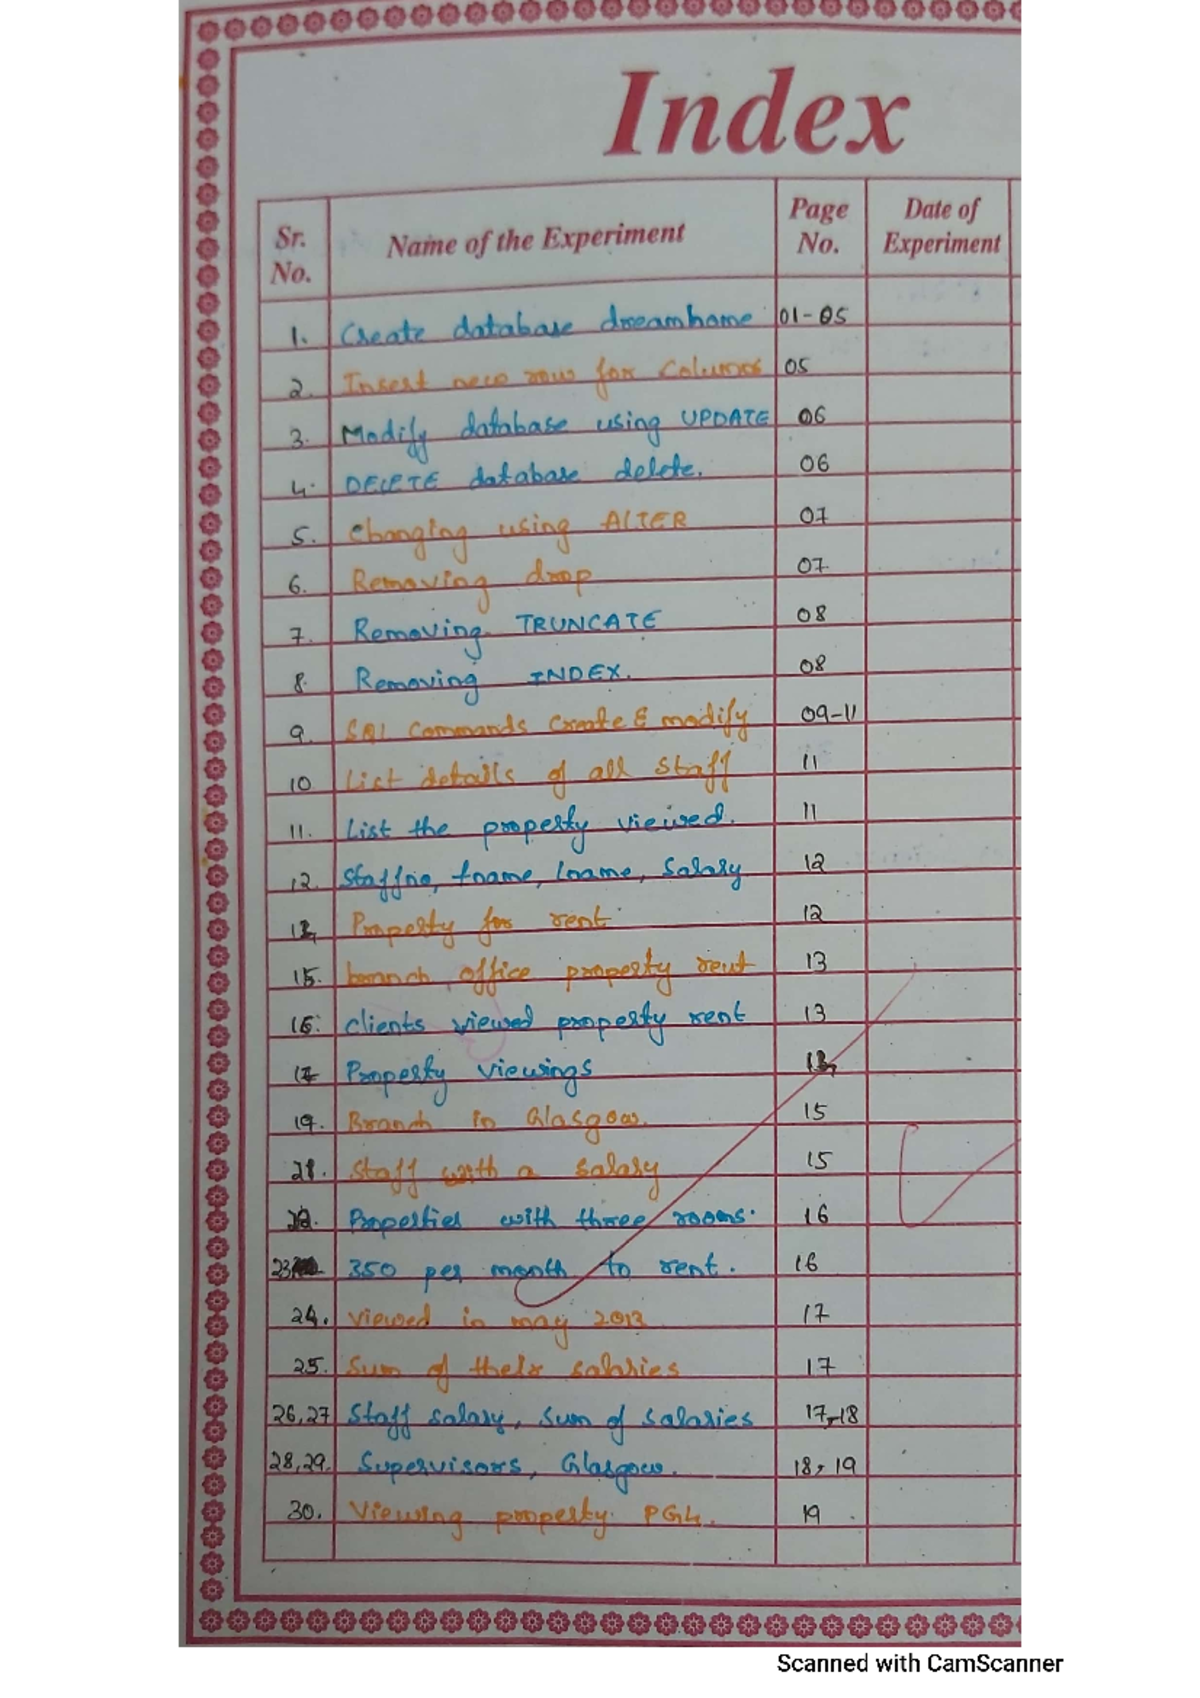 Index
Sr. No. Name of the Experiment Page No. Date of Experiment
1. Create database dreamhome 01-05
2. Insert new row for Columns 05
3. Modify database using UPDATE 06
4. DELETE database delete. 06
5. Changing using ALTER 07
6. Removing drop 07
7. Removing TRUNCATE 08
8. Removing INDEX. 08
9. SQL Commands Create & modify 09-11
10 List details of all Staff 11
11. List the property viewed. 11
12. Staffno, fname, lname, Salary 12
Property for rent 12
15. branch office property rent 13
16. clients viewed property rent 13
17 Property viewings
19. Branch in Glasgow. 15
21. Staff with a salary 15
22. Properties with three rooms. 16
23 350 per month to rent. 16
24. viewed in may 2013 17
25. Sum of their salaries 17
26,27 Staff salary, Sum of Salaries 17,18
28,29. Supervisors, Glasgow. 18, 19
30. Viewing property PG4. 19
Scanned with CamScanner